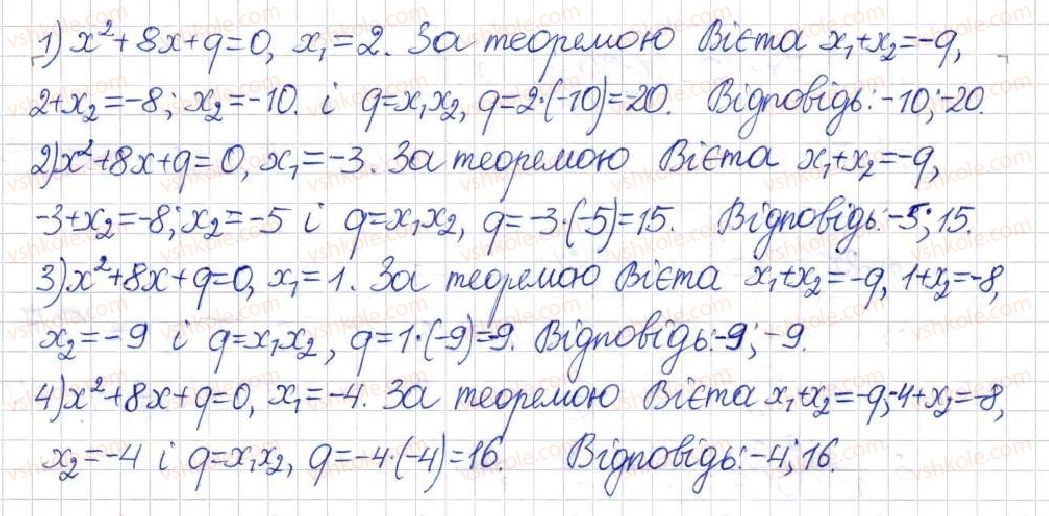 1) x²+8x+q=0, x₁=2. За теоремою Вієта x₁+x₂=-q,
2+x₂=-8; x₂=-10. і q=x₁x₂, q=2·(-10)=-20. Відповідь: -10; -20.
2) x²+8x+q=0, x₁=-3. За теоремою Вієта x₁+x₂=-q,
-3+x₂=-8; x₂=-5 і q=x₁x₂, q=-3·(-5)=15. Відповідь: -5; 15.
3) x²+8x+q=0, x₁=1. За теоремою Вієта x₁+x₂=-q, 1+x₂=-8,
x₂=-9 і q=x₁x₂, q=1·(-9)=-9. Відповідь: -9; -9.
4) x²+8x+q=0, x₁=-4. За теоремою Вієта x₁+x₂=-q, -4+x₂=-8,
x₂=-4 і q=x₁x₂, q=-4·(-4)=16. Відповідь: -4; 16.